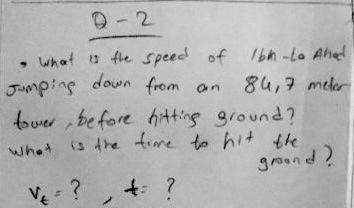 Q-2
What is the speed of Ibn-La Ahad
Jumping down from an 84,7 meter
tower, before hitting ground?
What is the time to hit the
ground?
Vₜ = ? , t = ?